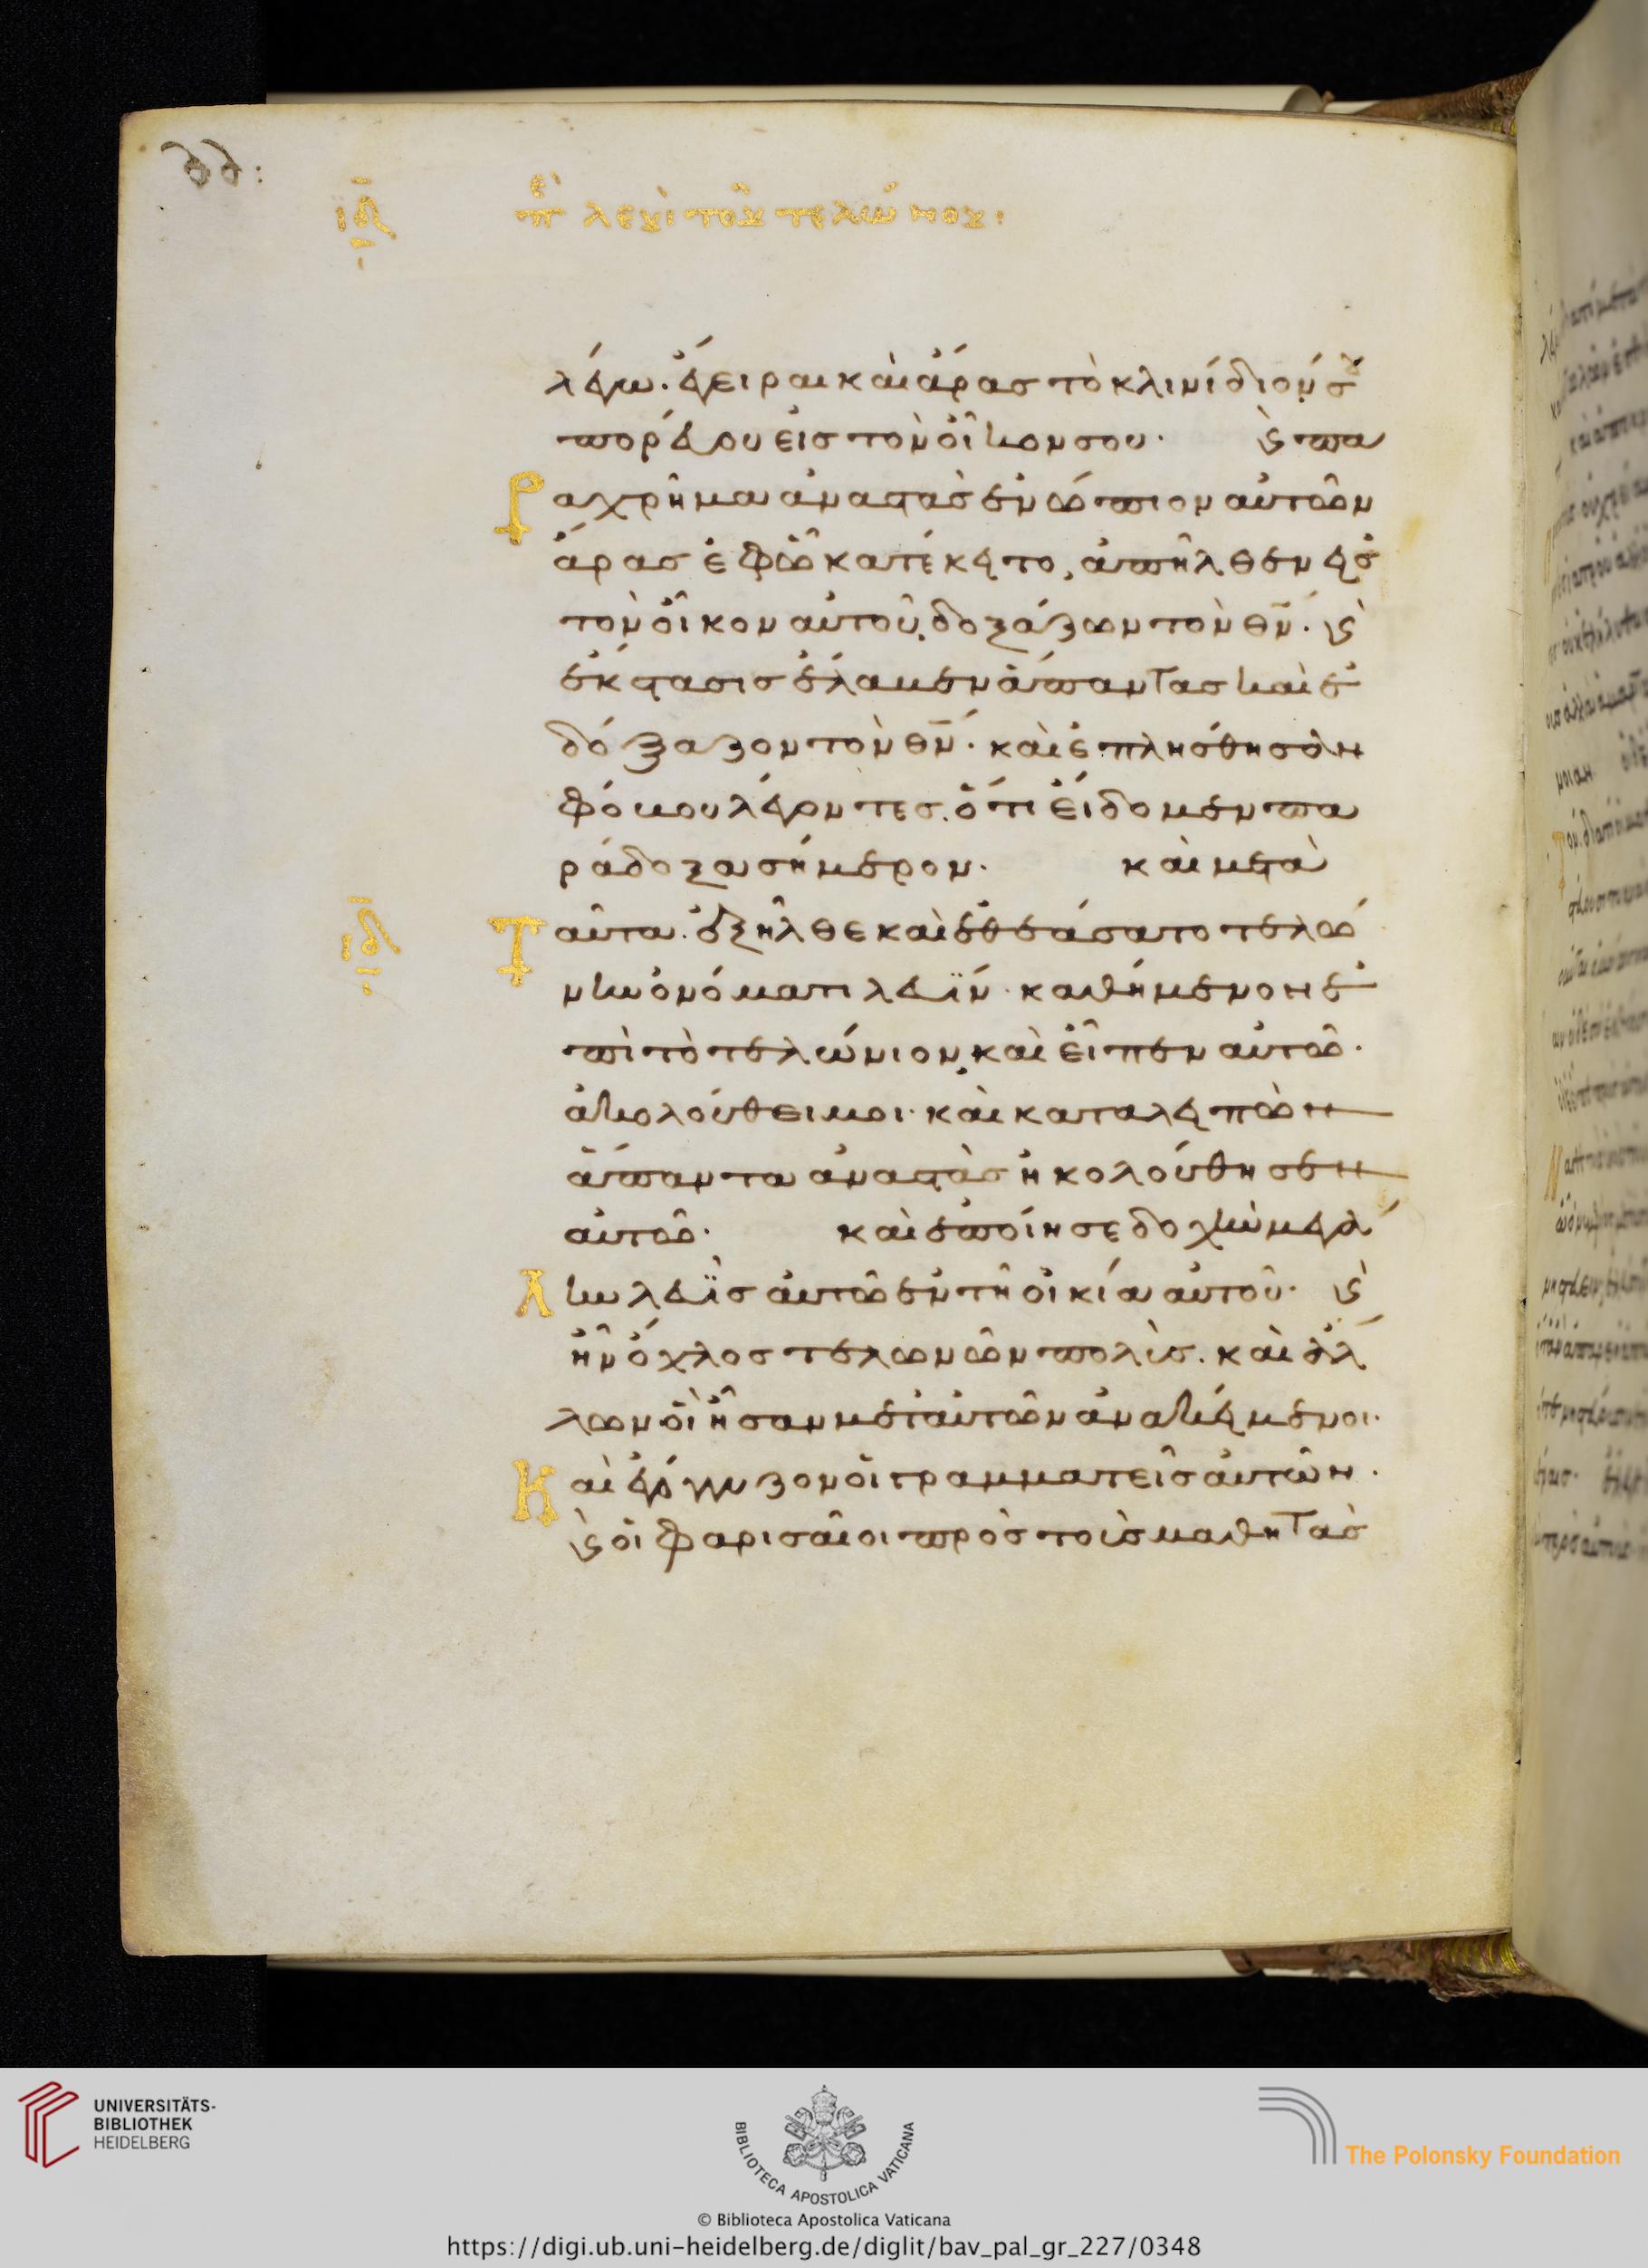 ιδ
πε λευὶ τοῦ τελώνου:
λέγω. ἔγειραι καὶ ἄρας τὸ κλινίδιόν σου
πορεύου εἰς τὸν οἶκον σου. καὶ πα
Ραχρῆμα ἀναστὰς ἐνώπιον αὐτῶν
ἄρας ἐφ ὧ κατέκειτο, ἀπῆλθεν εἰς
τὸν οἶκον αὐτοῦ, δοξάζων τὸν θν. καὶ
ἔκστασις ἔλαβεν ἅπαντας καὶ ἐ
δόξαζον τὸν θν. καὶ ἐπλήσθησαν
φόβου λέγοντες. ὅτι εἴδομεν πα
ράδοξα σήμερον. καὶ μετὰ
ιδ
Ταῦτα. ἐξῆλθε καὶ ἐθεάσατο τελώ
νην ὀνόματι λευΐν. καθήμενον ἐ
πὶ τὸ τελώνιον, καὶ εἶπεν αὐτῶ.
ἀκολούθει μοι. καὶ καταλειπὼν
ἅπαντα ἀναστὰς ἠκολούθησεν
αὐτῶ. καὶ ἐποίησε δοχὴν μεγά
Λην λευῒς αὐτῶ ἐν τῆ οἰκία αὐτοῦ. καὶ
ἦν ὄχλος τελωνῶν πολὺς. καὶ ἄλ
λων οἳ ἦσαν μετ αὐτῶν ἀνακείμενοι.
Καὶ ἐγόγγυζον οἱ γραμματεῖς αὐτῶν.
καὶ οἱ φαρισαῖοι πρὸς τοὺς μαθητὰς
UNIVERSITÄTS-
BIBLIOTHEK
HEIDELBERG
BIBLIOTECA APOSTOLICA VATICANA
The Polonsky Foundation
© Biblioteca Apostolica Vaticana
https://digi.ub.uni-heidelberg.de/diglit/bav_pal_gr_227/0348